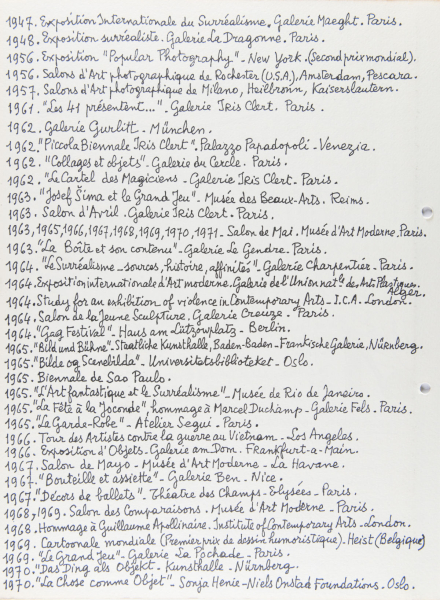 1947. Exposition Internationale du Surréalisme. Galerie Maeght. Paris.
1948. Exposition surréaliste. Galerie La Dragonne. Paris.
1956. Exposition "Popular Photography" - New York. (Second prix mondial).
1956. Salons d'Art photographique de Rochester (U.S.A.), Amsterdam, Pescara.
1957. Salons d'Art photographique de Milano, Heilbronn, Kaiserslautern.
1961. "Les 41 présentent..." - Galerie Iris Clert. Paris.
1962. Galerie Gurlitt - München.
1962. "Piccola Biennale Iris Clert". Palazzo Papadopoli - Venezia.
1962. "Collages et objets". Galerie du Cercle. Paris.
1962. "Le Cartel des Magiciens - Galerie Iris Clert. Paris.
1963. "Josef Šima et le Grand Jeu" - Musée des Beaux-Arts. Reims.
1963. Salon d'Avril. Galerie Iris Clert. Paris.
1963, 1965, 1966, 1967, 1968, 1969, 1970, 1971 - Salon de Mai. Musée d'Art Moderne, Paris.
1963. "La Boîte et son contenu" - Galerie Le Gendre. Paris.
1964. "Le Surréalisme - sources, histoire, affinités" - Galerie Charpentier - Paris.
1964. Exposition internationale d'Art moderne. Galerie de l'Union natle des Arts Plastiques. Alger.
1964. Study for an exhibition of violence in Contemporary Arts - I.C.A. London.
1964. Salon de la Jeune Sculpture. Galerie Creuze - Paris.
1964. "Gag Festival" - Haus am Lützowplatz - Berlin.
1965. "Bild und Bühne". Staatliche Kunsthalle, Baden-Baden - Fränkische Galerie, Nürnberg.
1965. "Bilde og Scenebilda" - Universitetsbiblioteket - Oslo.
1965. Biennale de Sao Paulo.
1965. "L'Art fantastique et le Surréalisme" - Musée de Rio de Janeiro.
1965. "La Fête à la Joconde", hommage à Marcel Duchamp - Galerie Fels. Paris.
1965. "La Garde-Robe" - Atelier Segui - Paris.
1966. Tour des Artistes contre la guerre au Vietnam - Los Angeles.
1966. Exposition d'Objets - Galerie am Dom. Frankfurt-a-Main.
1967. Salon de Mayo - Musée d'Art Moderne - La Havane.
1967. "Bouteille et assiette" - Galerie Ben - Nice.
1967. "Décors de ballets". Théâtre des Champs-Elysées - Paris.
1968, 1969. Salon des Comparaisons. Musée d'Art Moderne - Paris.
1968. Hommage à Guillaume Apollinaire. Institute of Contemporary Arts - London.
1969. Cartoonale mondiale (Premier prix de dessin humoristique). Heist (Belgique)
1969. "Le Grand Jeu" - Galerie La Pochade - Paris.
1970. "Das Ding als Objekt - Kunsthalle - Nürnberg.
1970. "La Chose comme Objet" - Sonja Henie-Niels Onstad Foundations. Oslo.